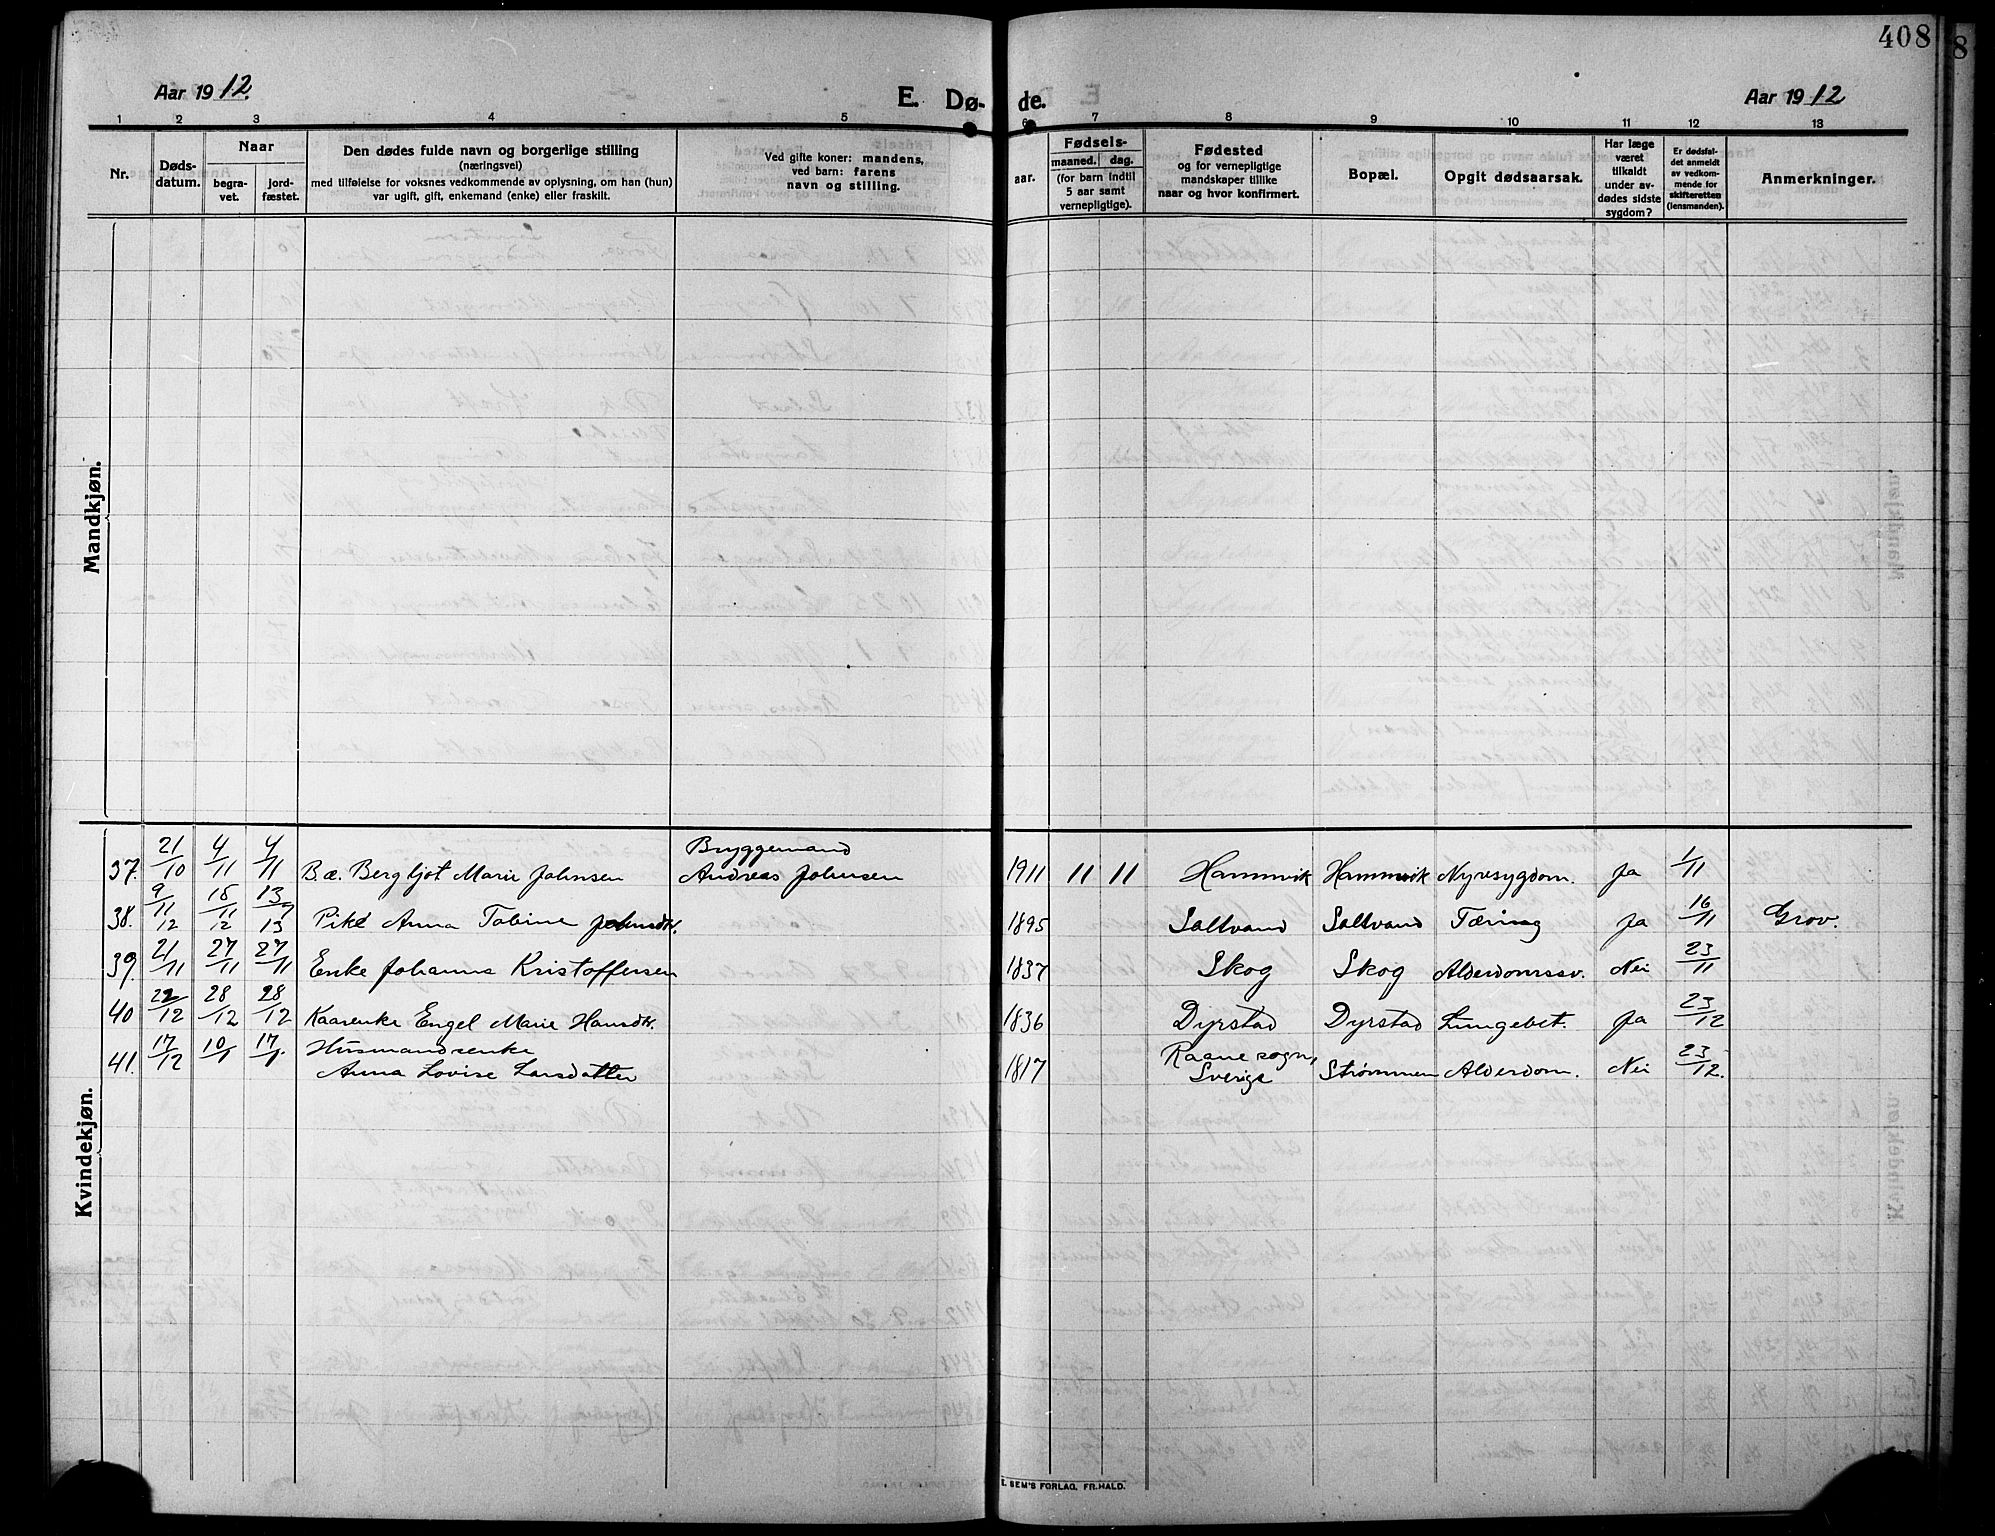 408
Aar 1912.
E. Dø- de.
Aar 1912
1 2 3 4 5 6 7 8 9 10 11 12 13
Nr.
Døds-
datum.
Naar
begra-
vet.
jord-
fæstet.
Den dødes fulde navn og borgerlige stilling
(næringsvei)
med tilføielse for voksnes vedkommende av oplysning, om han (hun)
var ugift, gift, enkemand (enke) eller fraskilt.
Ved gifte koner: mandens,
ved barn: farens
navn og stilling.
aar.
Fødsels-
maaned. dag.
(for barn indtil
5 aar samt
vernepligtige).
Fødested
og for vernepligtige
mandskaper tillike
naar og hvor konfirmert.
Bopæl.
Opgit dødsaarsak.
Har læge
været
tilkaldt
under av-
dødes sidste
sygdom?
Er dødsfal-
det anmeldt
av vedkom-
mende for
skifteretten
(lensmanden).
Anmerkninger.
Mandkjøn.
Kvindekjøn.
Bryggemand
37. 21/10 4/11 4/11 B.æ. Bergljot Marie Johnsen Andreas Johnsen 1911 11 11 Hammvik Hammvik Nyresygdom. Ja 1/11
38. 9/11 12 15/11 12 13/7 13 Pike Anna Tobine Johnsdtr. 1895 Saltvand Saltvand Tæring Ja 16/11 Grov.
39. 21/11 27/11 27/11 Enke Johanna Kristoffersen 1837 Skog Skog Alderdomssv. Nei 23/11
40 22/12 28/12 28/12 Kaarenke Engel Marie Hansdtr. 1836 Dyrstad Dyrstad Lungebet. Ja 23/12
41. 17/12 10/1 17/1. Husmandsenke Raane sogn,
Anna Lovise Larsdatter 1817 Sverige Strømmen Alderdom. Nei 23/12.
E. SEM'S FORLAG, FR.HALD.